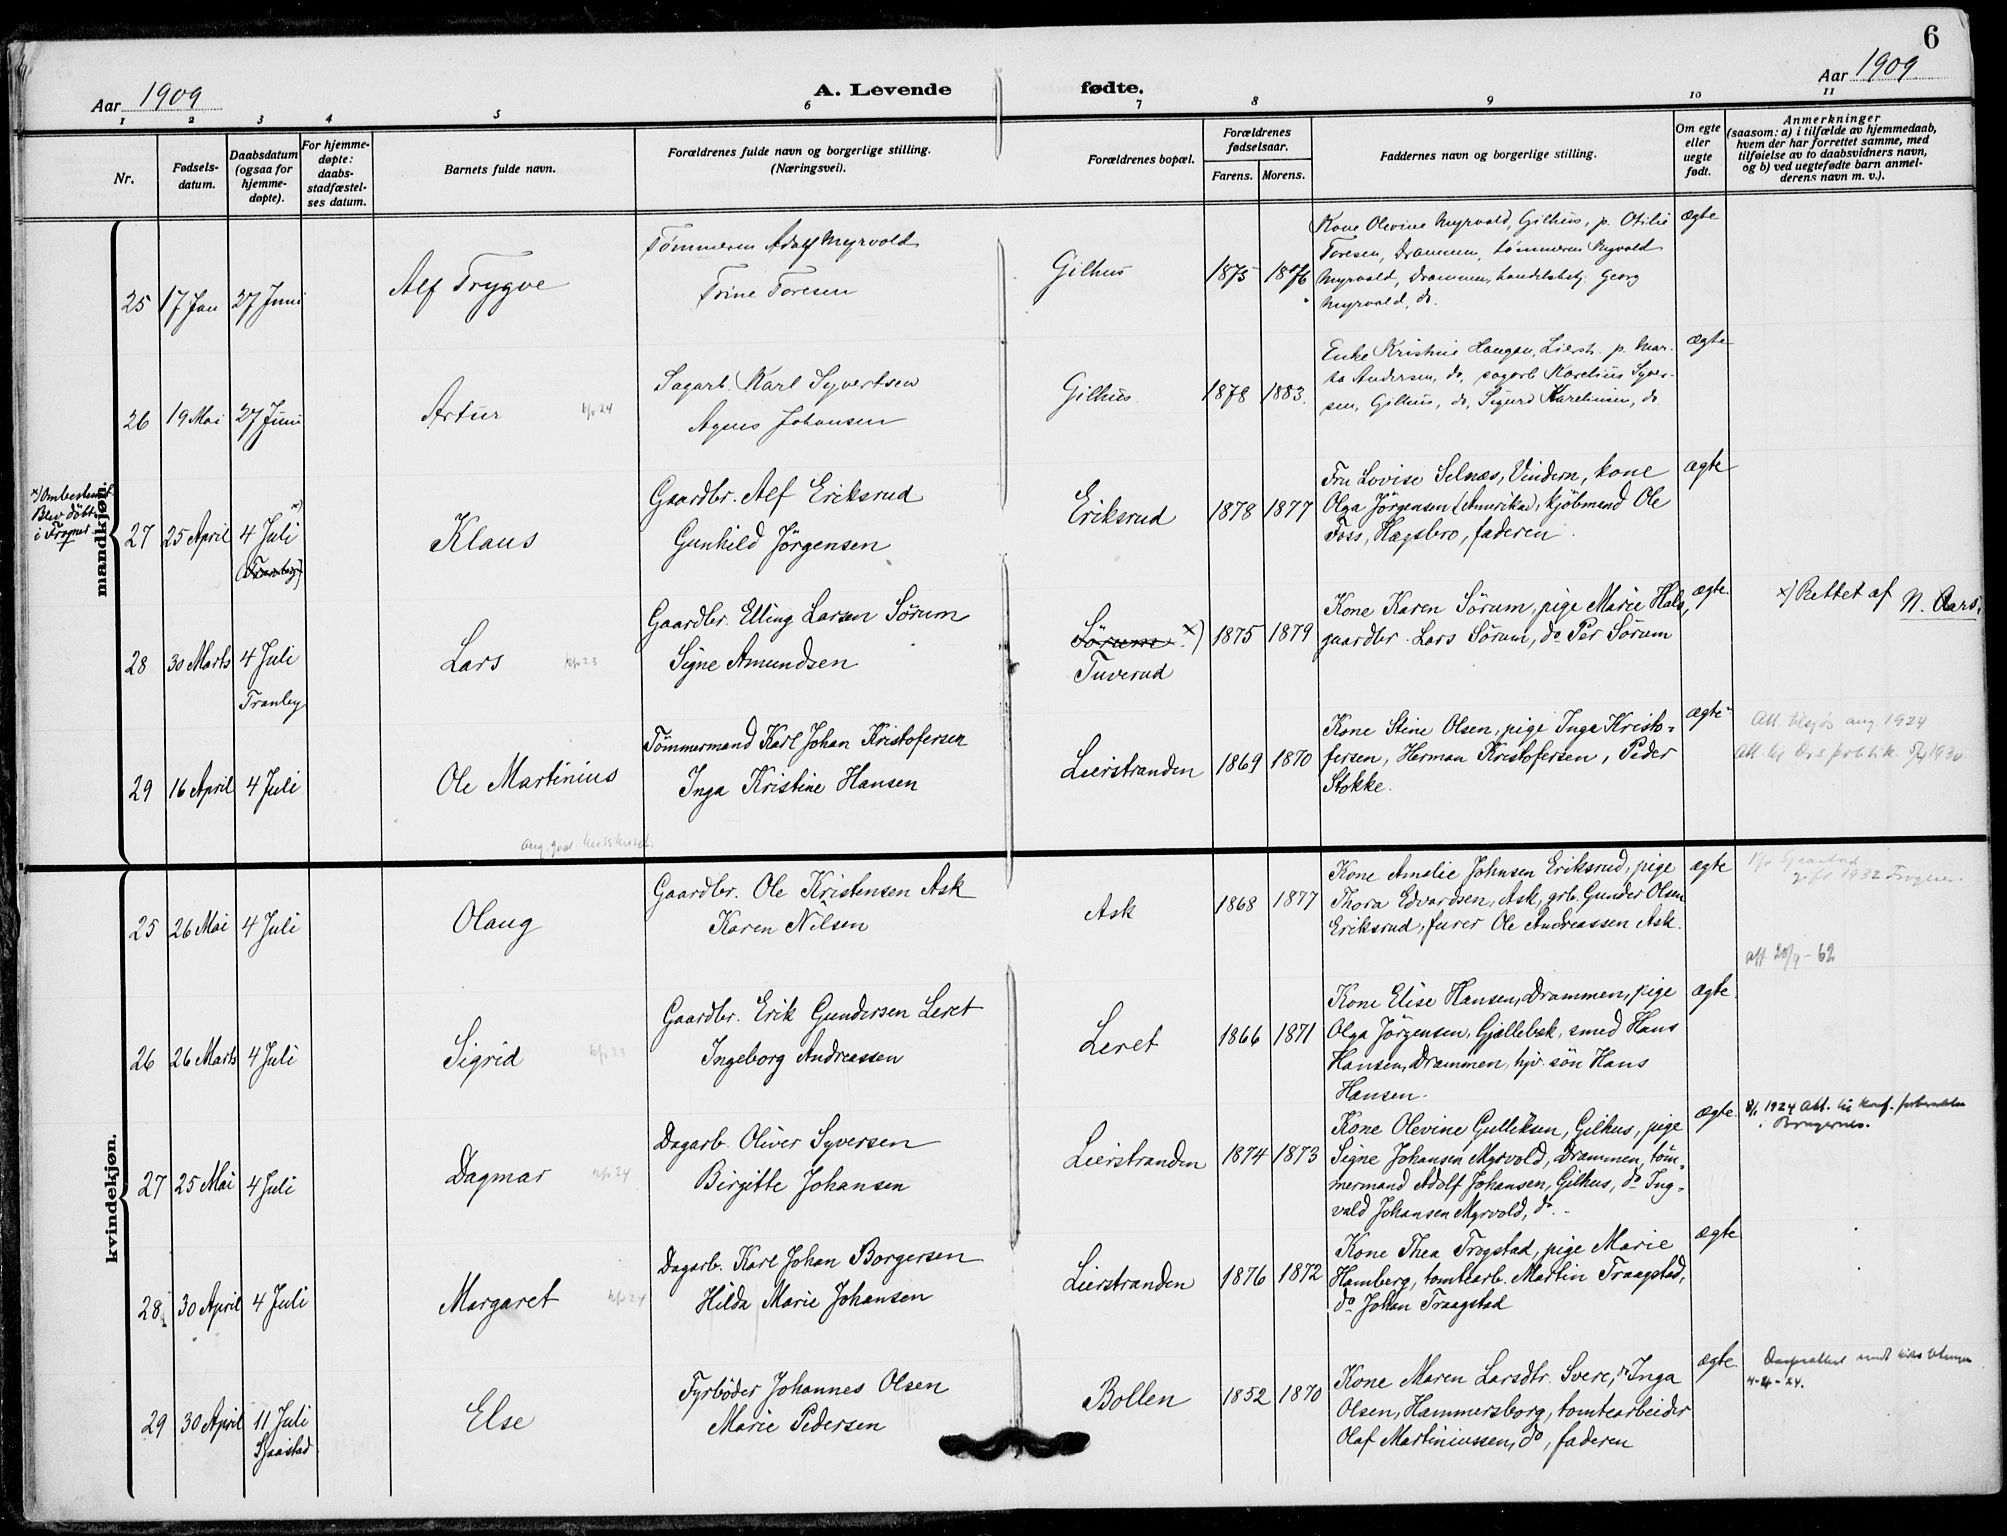 6
Aar 1909
A. Levende fødte.
Aar 1909
1 2 3 4 5 6 7 8 9 10 11
Nr.
Fødsels-
datum.
Daabsdatum
(ogsaa for
hjemme-
døpte).
For hjemme-
døpte:
daabs-
stadfæstel-
ses datum.
Barnets fulde navn.
Forældrenes fulde navn og borgerlige stilling.
(Næringsvei).
Forældrenes bopæl.
Forældrenes
fødselsaar.
Farens. Morens.
Faddernes navn og borgerlige stilling.
Om egte
eller
uegte
født.
Anmerkninger
(saasom: a) i tilfælde av hjemmedaab,
hvem der har forrettet samme, med
tilføielse av to daabsvidners navn,
og b) ved uegtefødte barn anmel-
derens navn m. v.).
mandkjøn.
25 17 Jan 27 Juni
Alf Trygve
Tømmerm Adolf Myrvold
Trine Toresen
Gilhus
1875 1876
Kone Olevine Myrvold, Gilhus, p. Otilie
Toresen, Drammen, tømmerm
Myrvold, Drammen, handelsbetj. Georg
Myrvold, do.
ægte
26 19 Mai 27 Juni
Artur
Sagarb. Karl Syvertsen
Agnes Johansen
Gilhus.
1878 1883.
Enke Kristine Haugan, Lierstr. p. Mar-
ta Andersen, do, sagarb Karelius Syver-
sen, Gilhus, do, Sigurd Kareliussen, do
ægte
x) Ombestemt.
Blev döbt
i Frogner
27 25 April 4 Juli x)
(Tranby)
Klaus
Gaardbr. Alf Eriksrud
Gunhild Jörgensen
Eriksrud
1878 1877
Fru Lovise Selnæs, Vindern, kone
Olga Jörgensen (Amerika), kjöbmand Ole
Foss, Hægsbro, faderen.
ægte
28 30 Marts 4 Juli
Tranby
Lars
Gaardbr. Elling Larsen Sörum
Signe Amundsen
Sörum x)
Tuverud
1875 1879
Kone Karen Sörum, pige Marie Hals,
gaardbr. Lars Sörum, do Per Sörum
ægte
x) Rettet af N. Aars.
29 16 April 4 Juli
Ole Martinius
Tömmermand Karl Johan Kristofersen
Inga Kristine Hansen
Lierstranden
1869 1870
Kone Stine Olsen, pige Inga Kristo-
fersen, Herman Kristofersen, Peder
Stokke.
ægte
aug 1924
kvindekjøn.
25 26 Mai 4 Juli
Olaug
Gaardbr. Ole Kristensen Ask
Karen Nilsen
Ask
1868 1877
Kone Amalie Johnsen Eriksrud, pige
Thora Edvardsen, Ask, grb. Gunder Olsen
Eriksrud, furer Ole Andreassen Ask.
ægte
1932 Frogner.
att 20/9 - 62
26 26 Marts 4 Juli
Sigrid
Gaardbr. Erik Gundersen Leret
Ingeborg Andreassen
Leret
1866 1871
Kone Elise Hansen, Drammen, pige
Olga Jörgensen, Gjellebæk, smed Hans
Hansen, Drammen, hjv. sön Hans
Hansen.
ægte.
27 25 Mai 4 Juli
Dagmar
Dagarb. Oliver Syversen
Birgitte Johansen
Lierstranden
1874 1873
Kone Olevine Gulliksen, Gilhus, pige
Signe Johansen Myrvold, Drammen, töm-
mermand Adolf Johansen, Gilhus, do Ing-
vald Johansen Myrvold, do.
ægte.
1924 Att. til konf.
Bragernes.
28 30 April 4 Juli
Margaret
Dagarb. Karl Johan Borgersen
Hilda Marie Johansen
Lierstranden
1876 1872
Kone Thea Trogstad, pige Marie
Hamberg, tomtearb. Martin Traagstad,
do Johan Traagstad
ægte
29 30 April 11 Juli
Sjaastad
Else
Fyrböder Johannes Olsen
Marie Pedersen
Bollen
1852 1870
Kone Maren Larsdtr. Svere, do Inga
Olsen, Hammersborg, tomtearbeider
Olaf Martiniussen, do, faderen
ægte.
4-4-24.